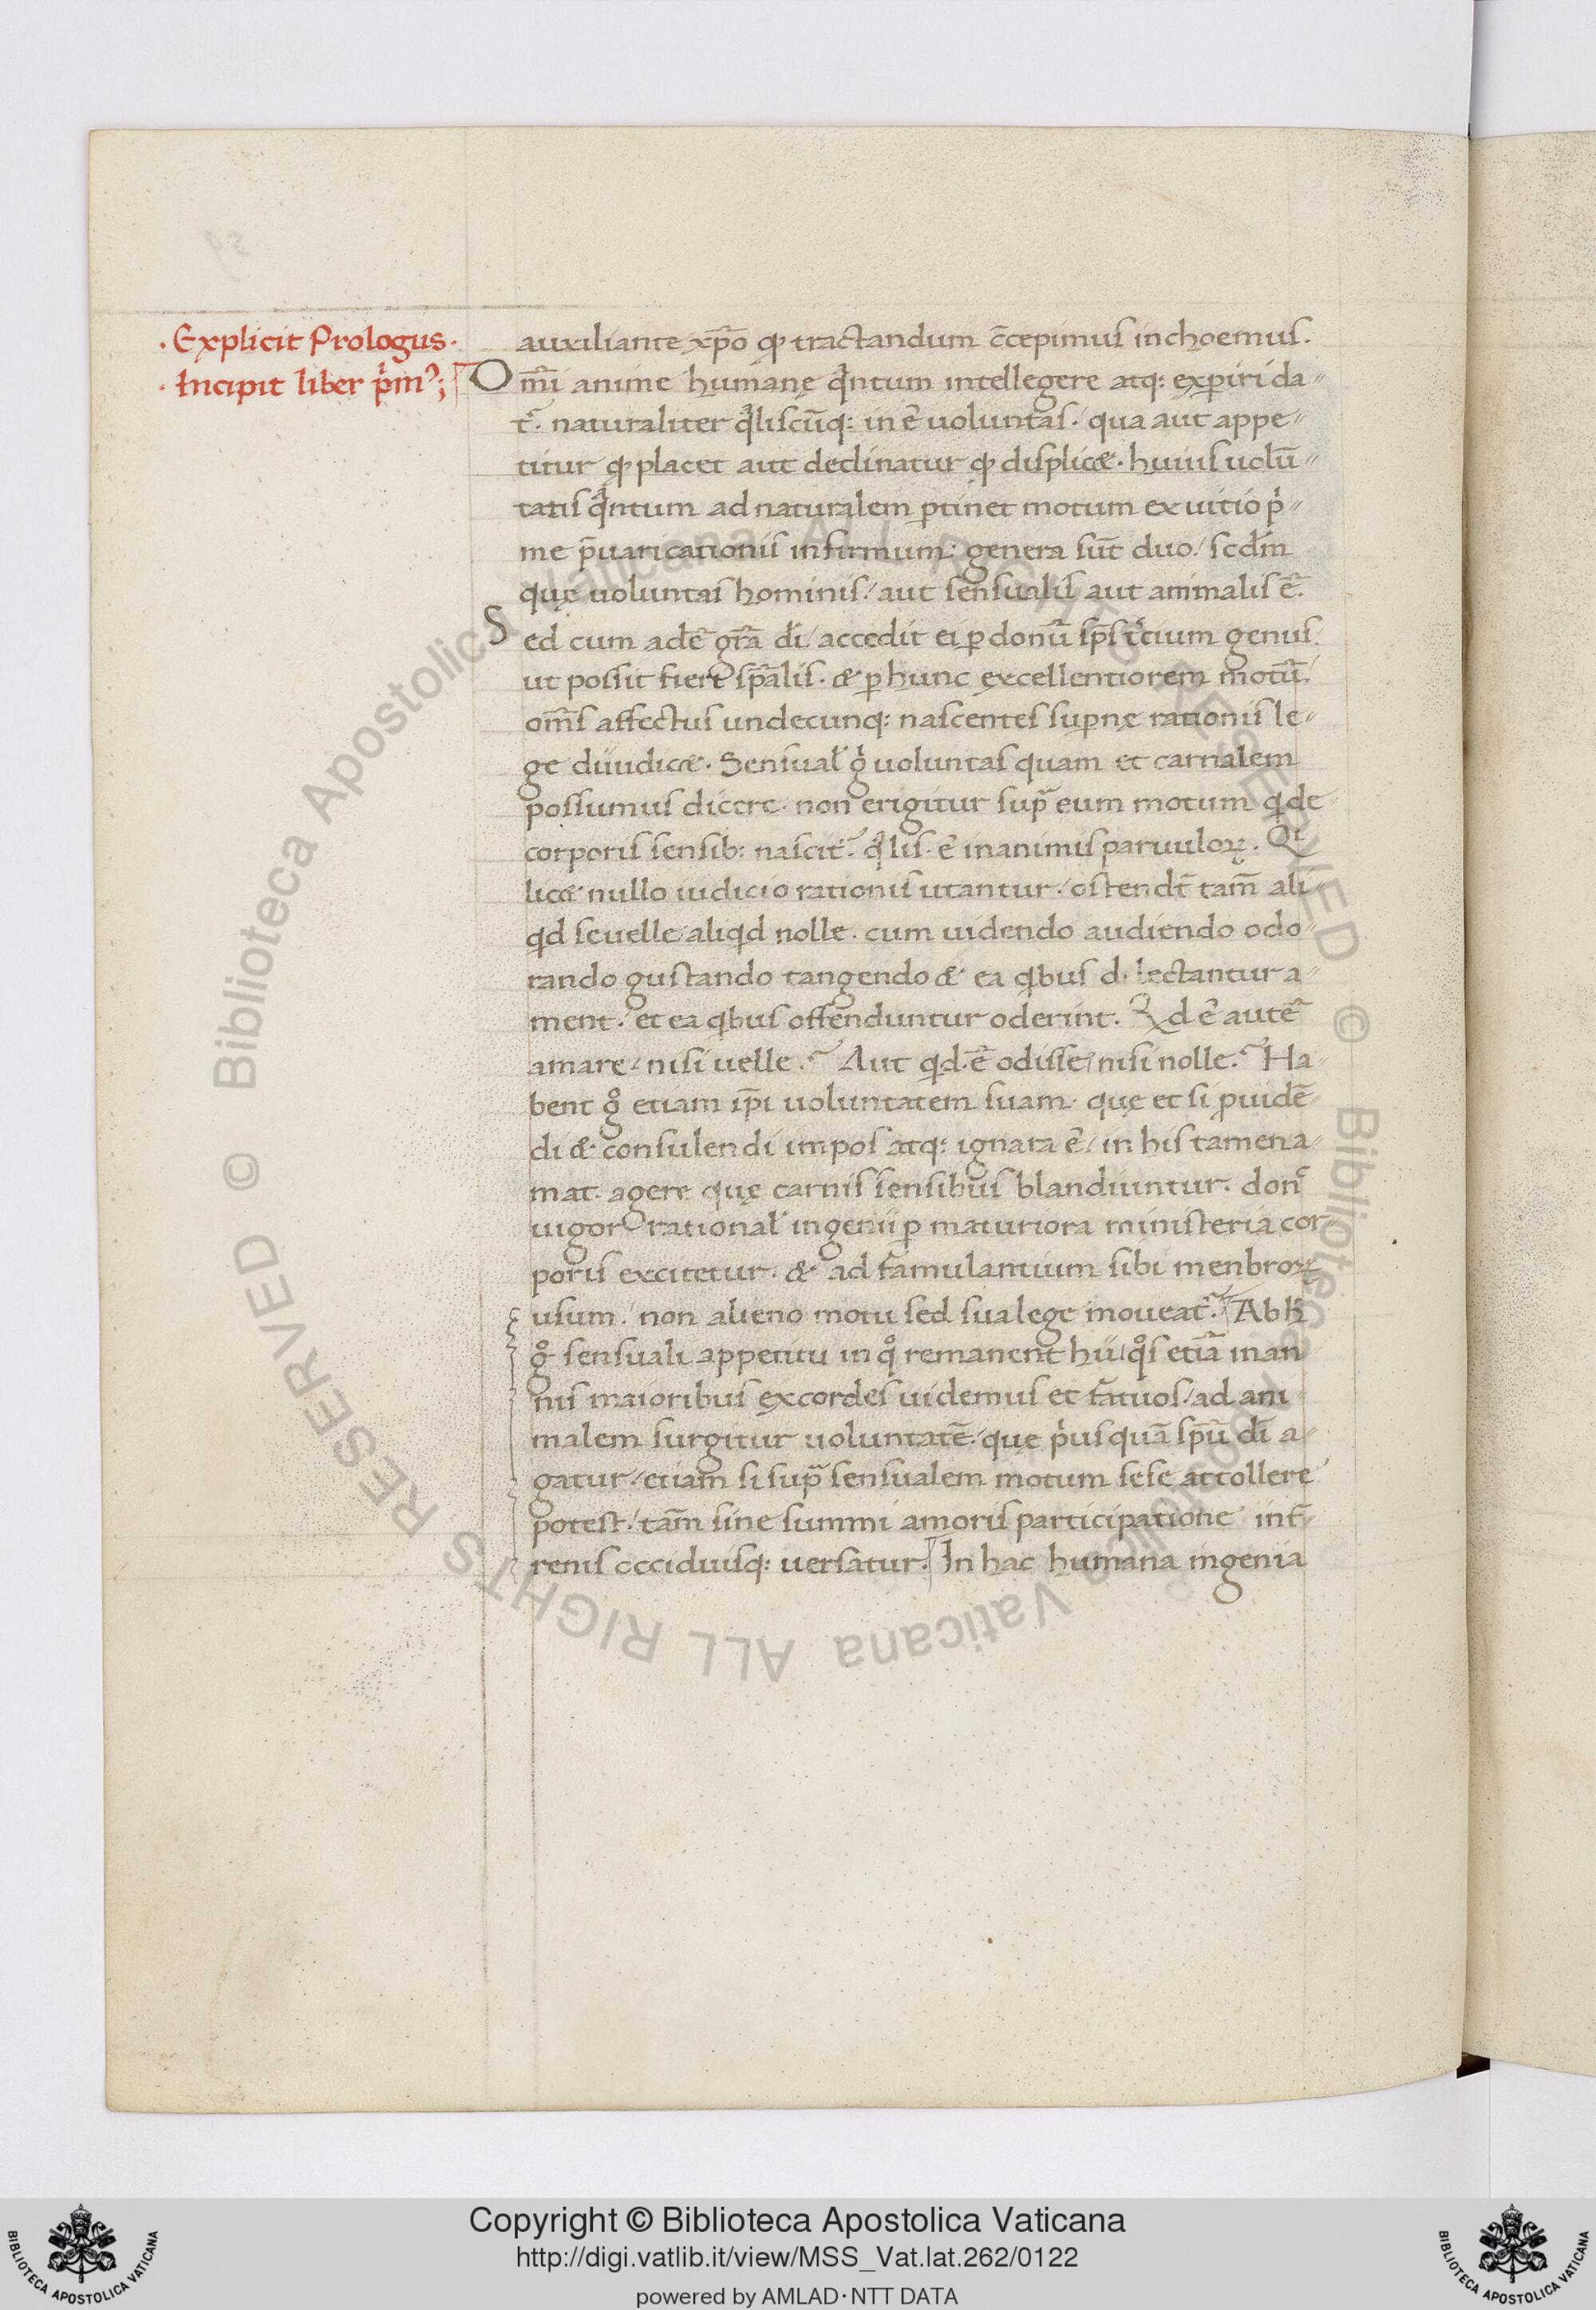 · Explicit Prologus ·
· Incipit liber p̾mꝰ;
auxiliante xp̄o ꝙ tractandum c̄cepimus inchoemus.
Om̄i anime humanę qͣntum intellegere atq: exꝑiri da-
t᷑. naturaliter qͣliscūq: in ē uoluntas. qua aut appe-
titur ꝙ placet aut declinatur ꝙ displicet. huius uolū-
tatis qͣntum ad naturalem ꝑtinet motum ex uitio p̾-
me p̄uaricationis infirmum: genera sūt duo. scd̄m
quę uoluntas hominis. aut sensualis aut animalis ē.
Sed cum adē gr̄a dī accedit ei ꝑ donū sp̄s t̾cium genus.
ut possit fieri sp̄alis. & ꝑ hunc excellentiorem motū.
om̄s affectus undecunq: nascentes suꝑnę rationis le-
ge diiudicet. Sensual̓ gͥ uoluntas quam et carnalem
possumus dicere. non erigitur sup̄ eum motum qͥ de
corporis sensib: nascit᷑. qͣlis ē in animis paruuloꝝ. Qͥ
licet nullo iudicio rationis utantur. ostendt̄ tam̄ ali
qͥd se uelle aliqͥd nolle. cum uidendo audiendo odo-
rando gustando tangendo & ea qͥbus d lectantur a-
ment. et ea qͥbus offenduntur oderint. Qͥd ē autē
amare. nisi uelle? Aut qͥd ē odisse. nisi nolle? Ha-
bent gͦ etiam ip̄i uoluntatem suam. quę et si ꝓuidē-
di & consulendi impos atq: ignara ē. in his tamen a-
mat agere quę carnis sensibus blandiuntur. donͨ
uigor rational̓ ingenii ꝑ maturiora ministeria cor
poris excitetur. & ad famulantium sibi menbroꝝ
usum. non alieno motu sed sua lege moueat᷑. Ab h̄
gͦ sensuali appetitu in qͦ remanent hii qͦs etiā in an
nis maioribus excordes uidemus et fatuos. ad ani
malem surgitur uoluntatē. quę p̾usquā sp̄u dī a-
gatur. etiam si sup̄ sensualem motum sese attollere
potest. tam̄ sine summi amoris participatione int̄-
renis occiduisq: uersatur. In hac humana ingenia
Copyright © Biblioteca Apostolica Vaticana
http://digi.vatlib.it/view/MSS_Vat.lat.262/0122
powered by AMLAD·NTT DATA
BIBLIOTECA APOSTOLICA VATICANA
BIBLIOTECA APOSTOLICA VATICANA
© Biblioteca Apostolica Vaticana ALL RIGHTS RESERVED © Biblioteca Apostolica Vaticana ALL RIGHTS RESERVED